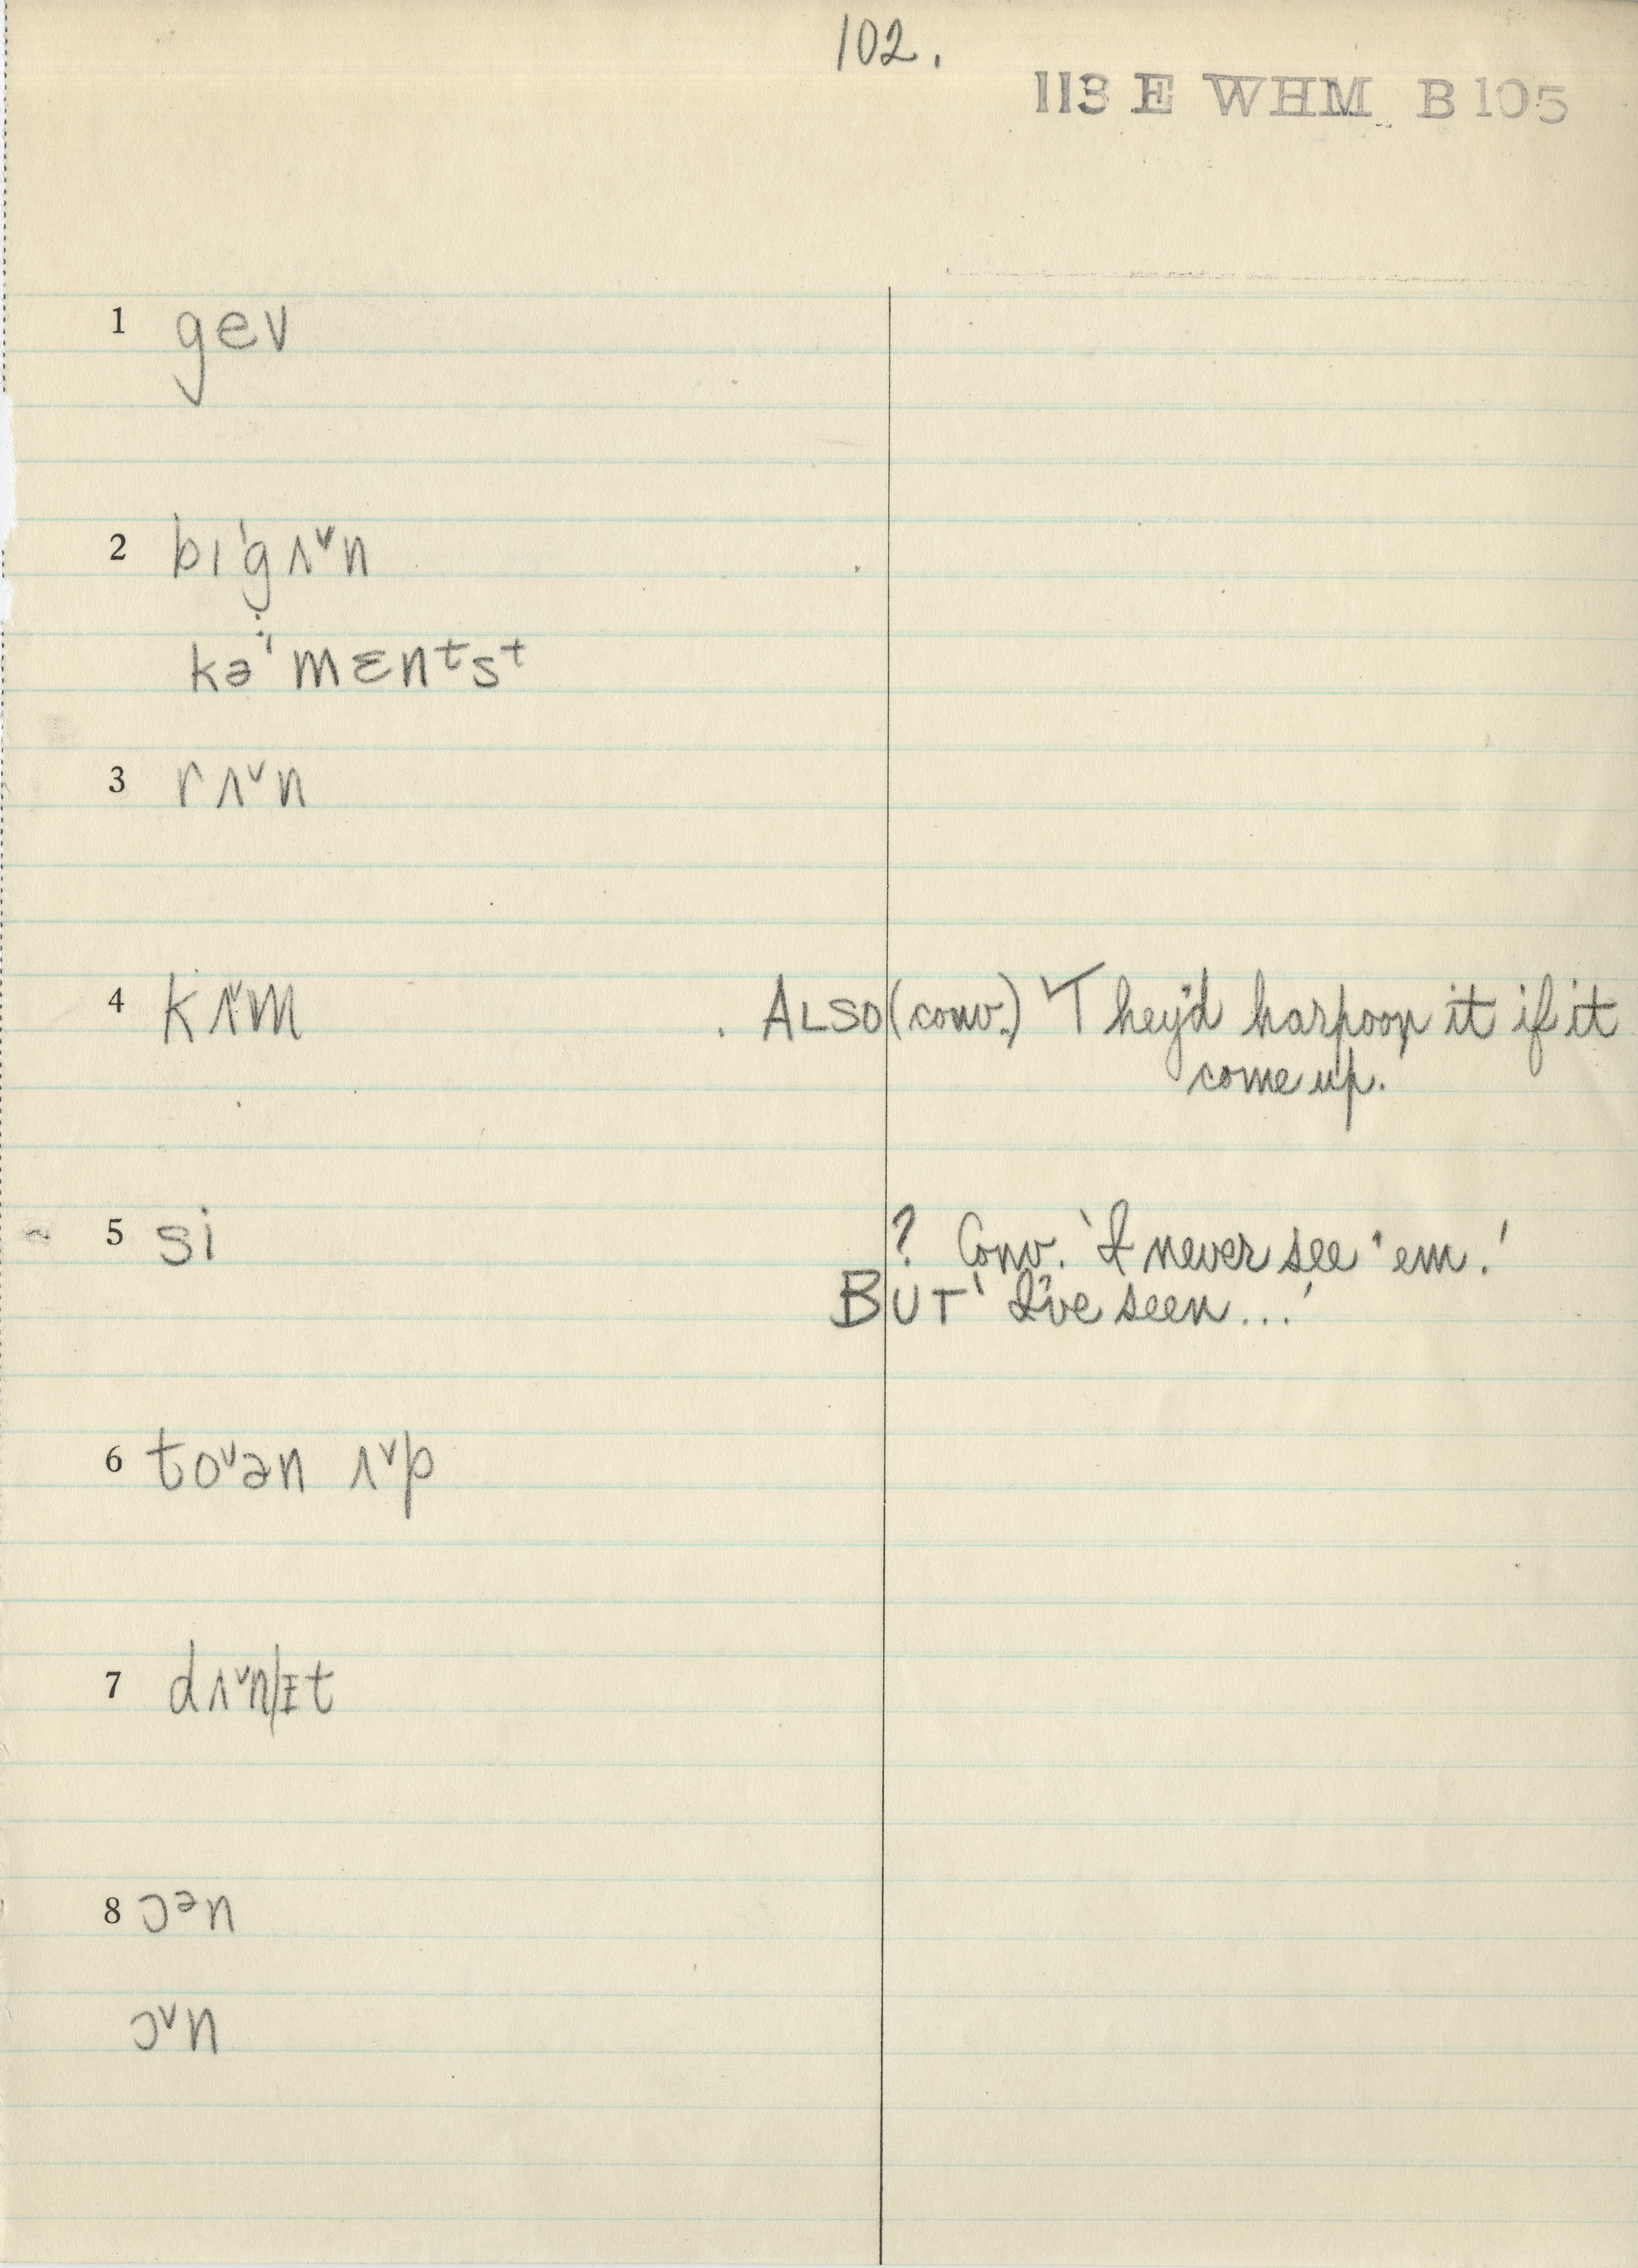 102.
113 E WHM B 105
1 gev
2 bɪ'gʌ˅n
kə'mɛnᵗsᵗ
3 rʌ˅n
4 kʌ˅m . ALSO (conv.) 'They'd harpoon it if it
come up.
5 si ? Conv. 'I never see 'em.'
BUT 'I've seen...'
6 to˅ən ʌ˅p
7 dʌ˅n|ɪt
8 ɔᵊn
ɔ˅n